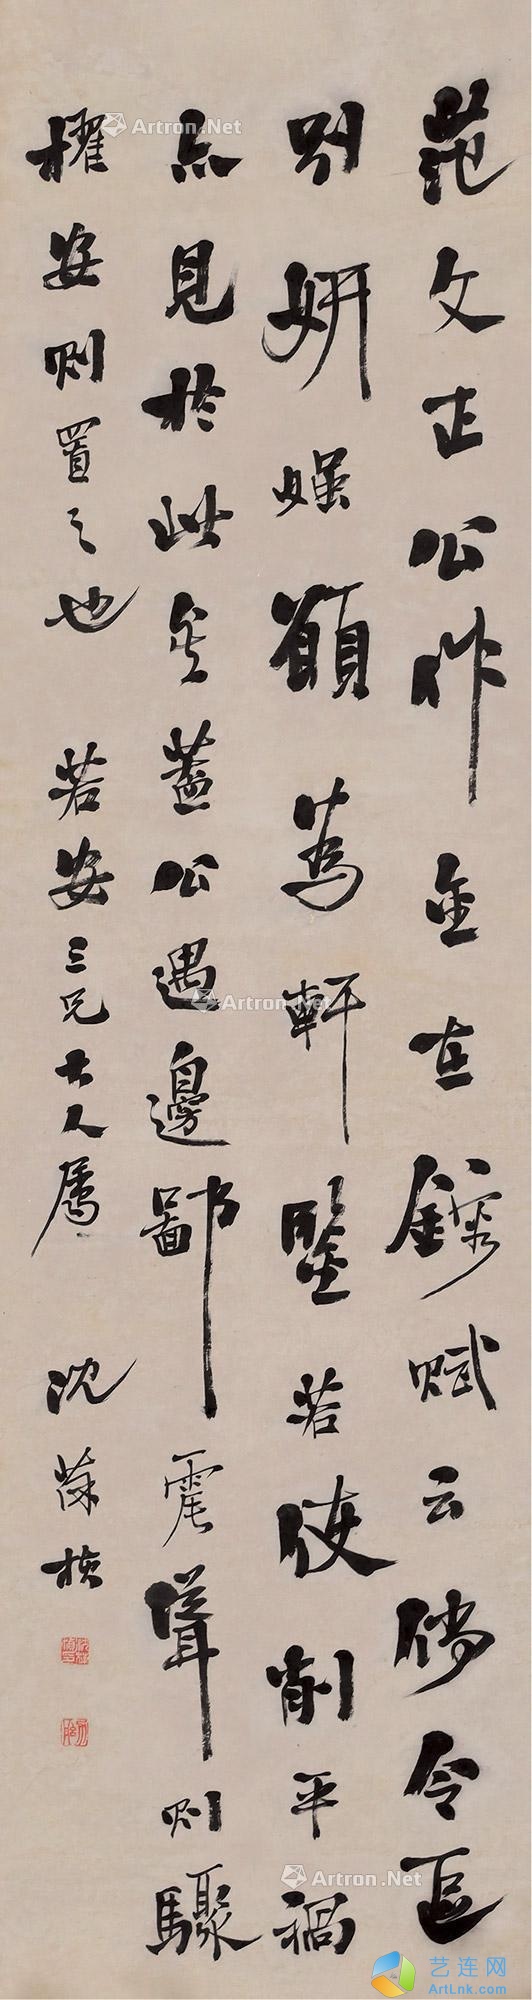 范文正公作金在鎔賦云倘令區
別妍媸願為軒鑒若使削平禍
亦見於此矣蓋公遇邊鄙震聳則驟
擢安則置之也 若安三兄大人屬 沈葆楨
Artron.Net
Artron.Net
Artron.Net
Artron.Net
Artron.Net
艺连网
ArtLnk.com